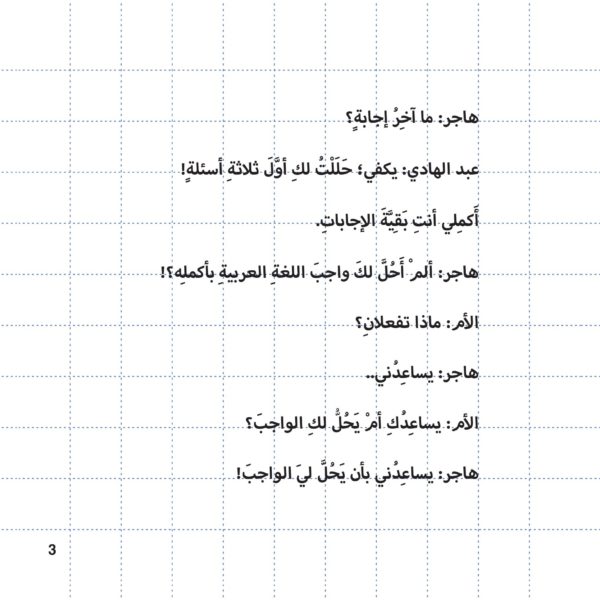 هاجر: ما آخِرُ إجابةٍ؟
عبد الهادي: يكفي؛ حَلَلْتُ لكِ أوَّلَ ثلاثةِ أسئلةٍ!
أَكمِلي أنتِ بَقِيَّةَ الإجاباتِ.
هاجر: ألمْ أَحُلَّ لكَ واجبَ اللغةِ العربيةِ بأكملِه؟!
الأم: ماذا تفعلانِ؟
هاجر: يساعِدُني..
الأم: يساعِدُكِ أمْ يَحُلُّ لكِ الواجبَ؟
هاجر: يساعِدُني بأن يَحُلَّ ليَ الواجبَ!
3